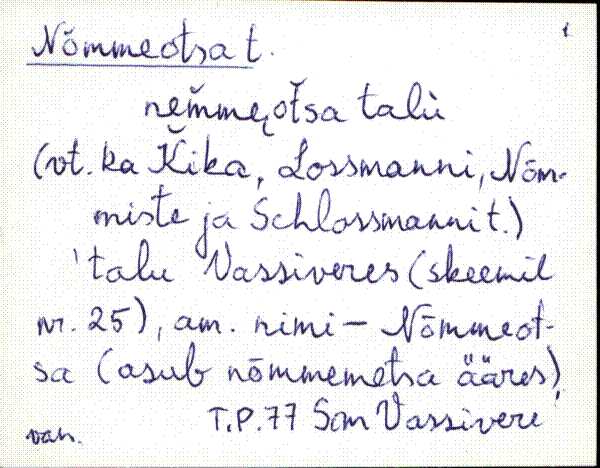 Nõmmeotsa t. 1
nem̆meo̭t̆sa talù
(vt. ka K̆ika, Lossmanni, Nõm-
miste ja Schlossmanni t.)
'talu Vassiveres (skeemil
nr. 25), am. nimi – Nõmmeot-
sa (asub nõmmemetsa ääres),
T.P.77 Som Vassivere
van.